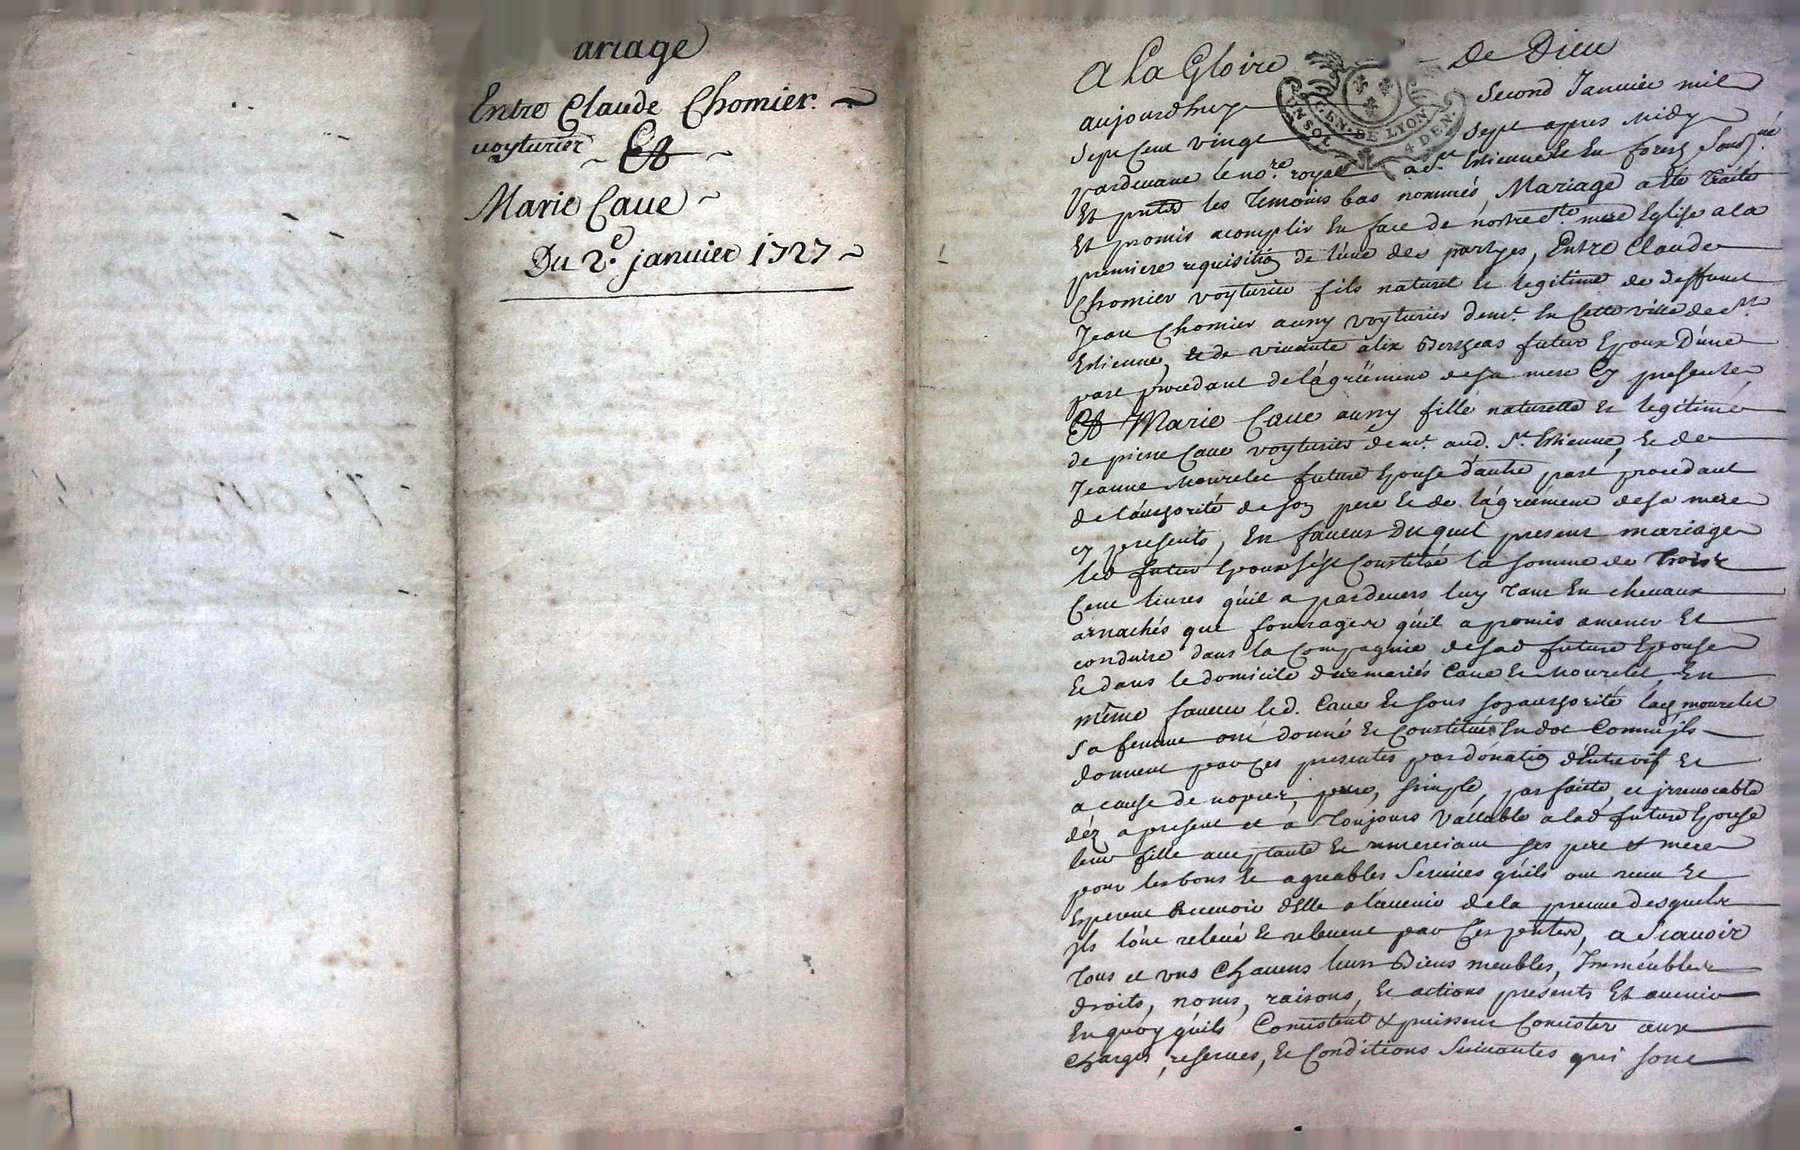 ariage
Entre Claude Chomier.
voyturier
Et
Marie Caue
Du 2e. janvier 1727
A La Gloire De Dieu
GEN. DE LION
UN SOL 4 DEN.
aujourdhuy Second Janvier mil
Sept Cent vingt Sept apres midy
pardevant le nore. royal a St. Estienne En forest Soussné.
Et pntes les temoins bas nommés, Mariage a ete traité
Et promis acomplir En face de nostre Ste. mere Eglise a la
premiere requisition de l'une des partyes, Entre Claude
Chomier voyturier fils naturel et legitime de deffunct
Jean Chomier aussy voyturier demt. En Cette ville de St.
Estienne, et de vivante alix futur Epoux D'une
part procedant de l'agréement de sa mere Cy presente
Et Marie Caue aussy fille naturelle et legitime
de pierre Caue voyturier demt. aud. St. Estienne, et de
Jeanne Mourelet future Epouse d'autre part procedant
de l'authorité de son pere et de l'agréement de sa mere
cy presents, En faveur Duquel present mariage
led futur Epoux s'est Constitué la somme de trois
Cent livres qu'il a pardevers luy tant En chevaux
arnachés que fourrages qu'il a promis amener Et
conduire dans la Compagnie de sad future Epouse
Et dans le domicile des mariés Caue et Mourelet, En
même faveur led. Caue et sous son authorité lad mourelet
sa femme ont donné et Constitué En dot Comme jls
donnent par ces presentes par donation d'Entrevif et
a cause de nopces, pure, simple, parfaite, et jrrevocable
déz a present et a toujours vallable a lad future Epouse
leur fille acceptante et remerciant ses pere & mere
pour les bons et agreables Services qu'ils ont receu et
Esperent Recevoir d'Elle a l'avenir de la preuve desquels
jls l'ont relevé et relevent par Ces pntes, a Scavoir
tous et uns Chacuns leurs Biens meubles, Immeubles
droits, noms, raisons, et actions présents Et avenir
En quoy qu'ils Consistent & puissent Consister aux
charges, reserves, et Conditions Suivantes qui sont